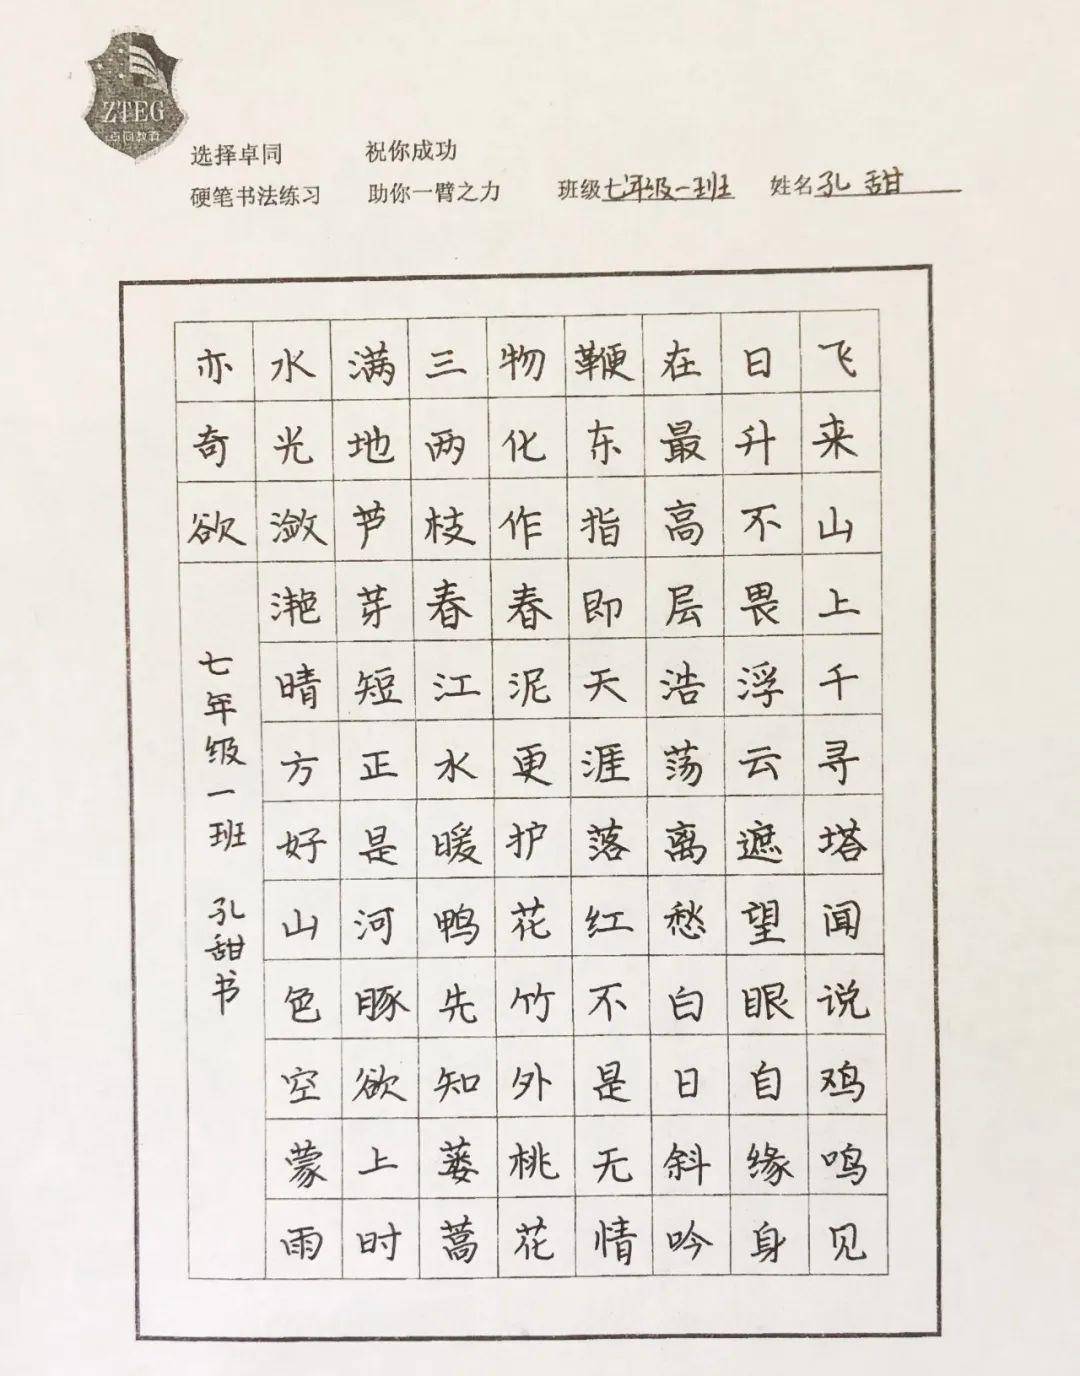 ZTEG
卓同教育
选择卓同 祝你成功
硬笔书法练习 助你一臂之力 班级七年级一班 姓名孔甜
飞来山上千寻塔闻说鸡鸣见
日升不畏浮云遮望眼自缘身
在最高层浩荡离愁白日斜吟
鞭东指即天涯落红不是无情
物化作春泥更护花竹外桃花
三两枝春江水暖鸭先知蒌蒿
满地芦芽短正是河豚欲上时
水光潋滟晴方好山色空蒙雨
亦奇欲
七年级一班 孔甜书